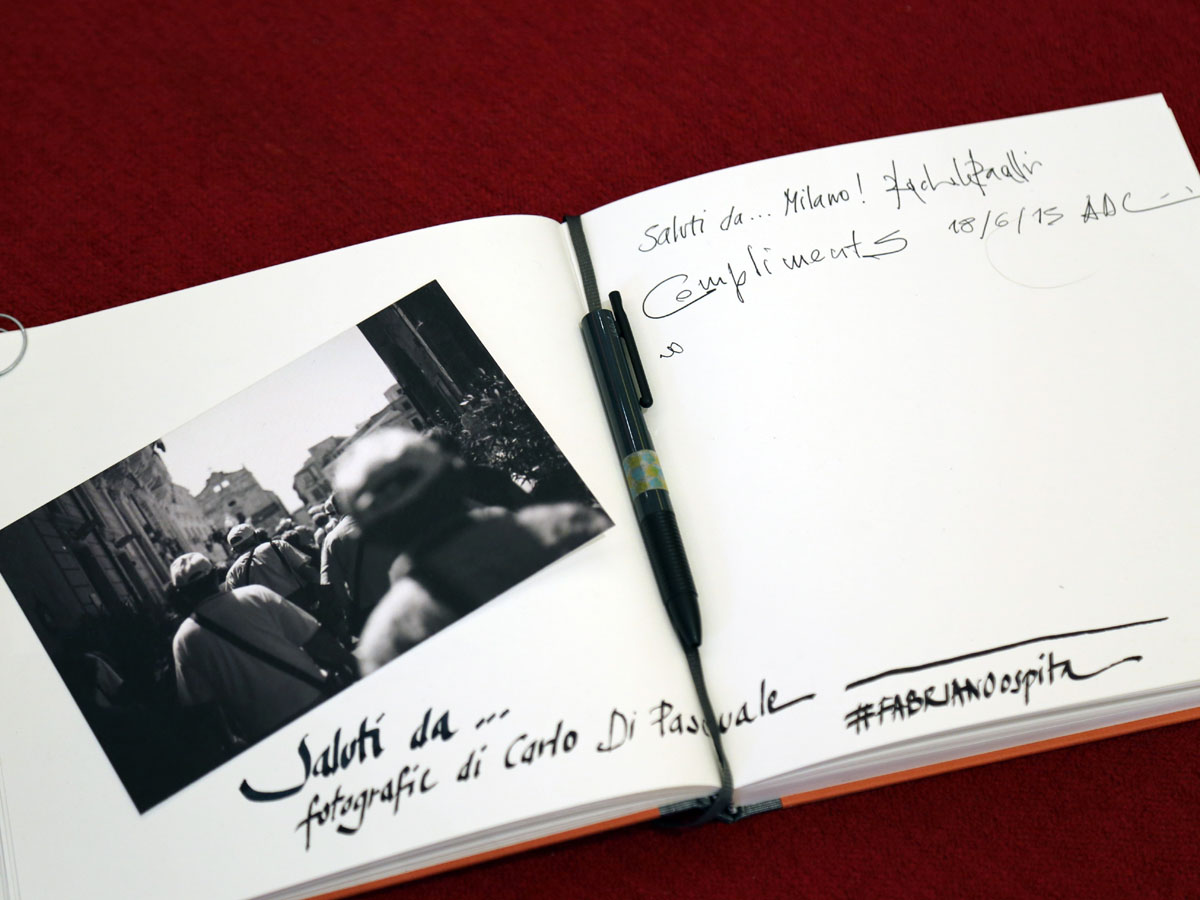 Saluti da... Milano!
18/6/15 ADC
Compliments
Saluti da...
fotografie di Carlo Di Pasquale
#FABRIANOospita